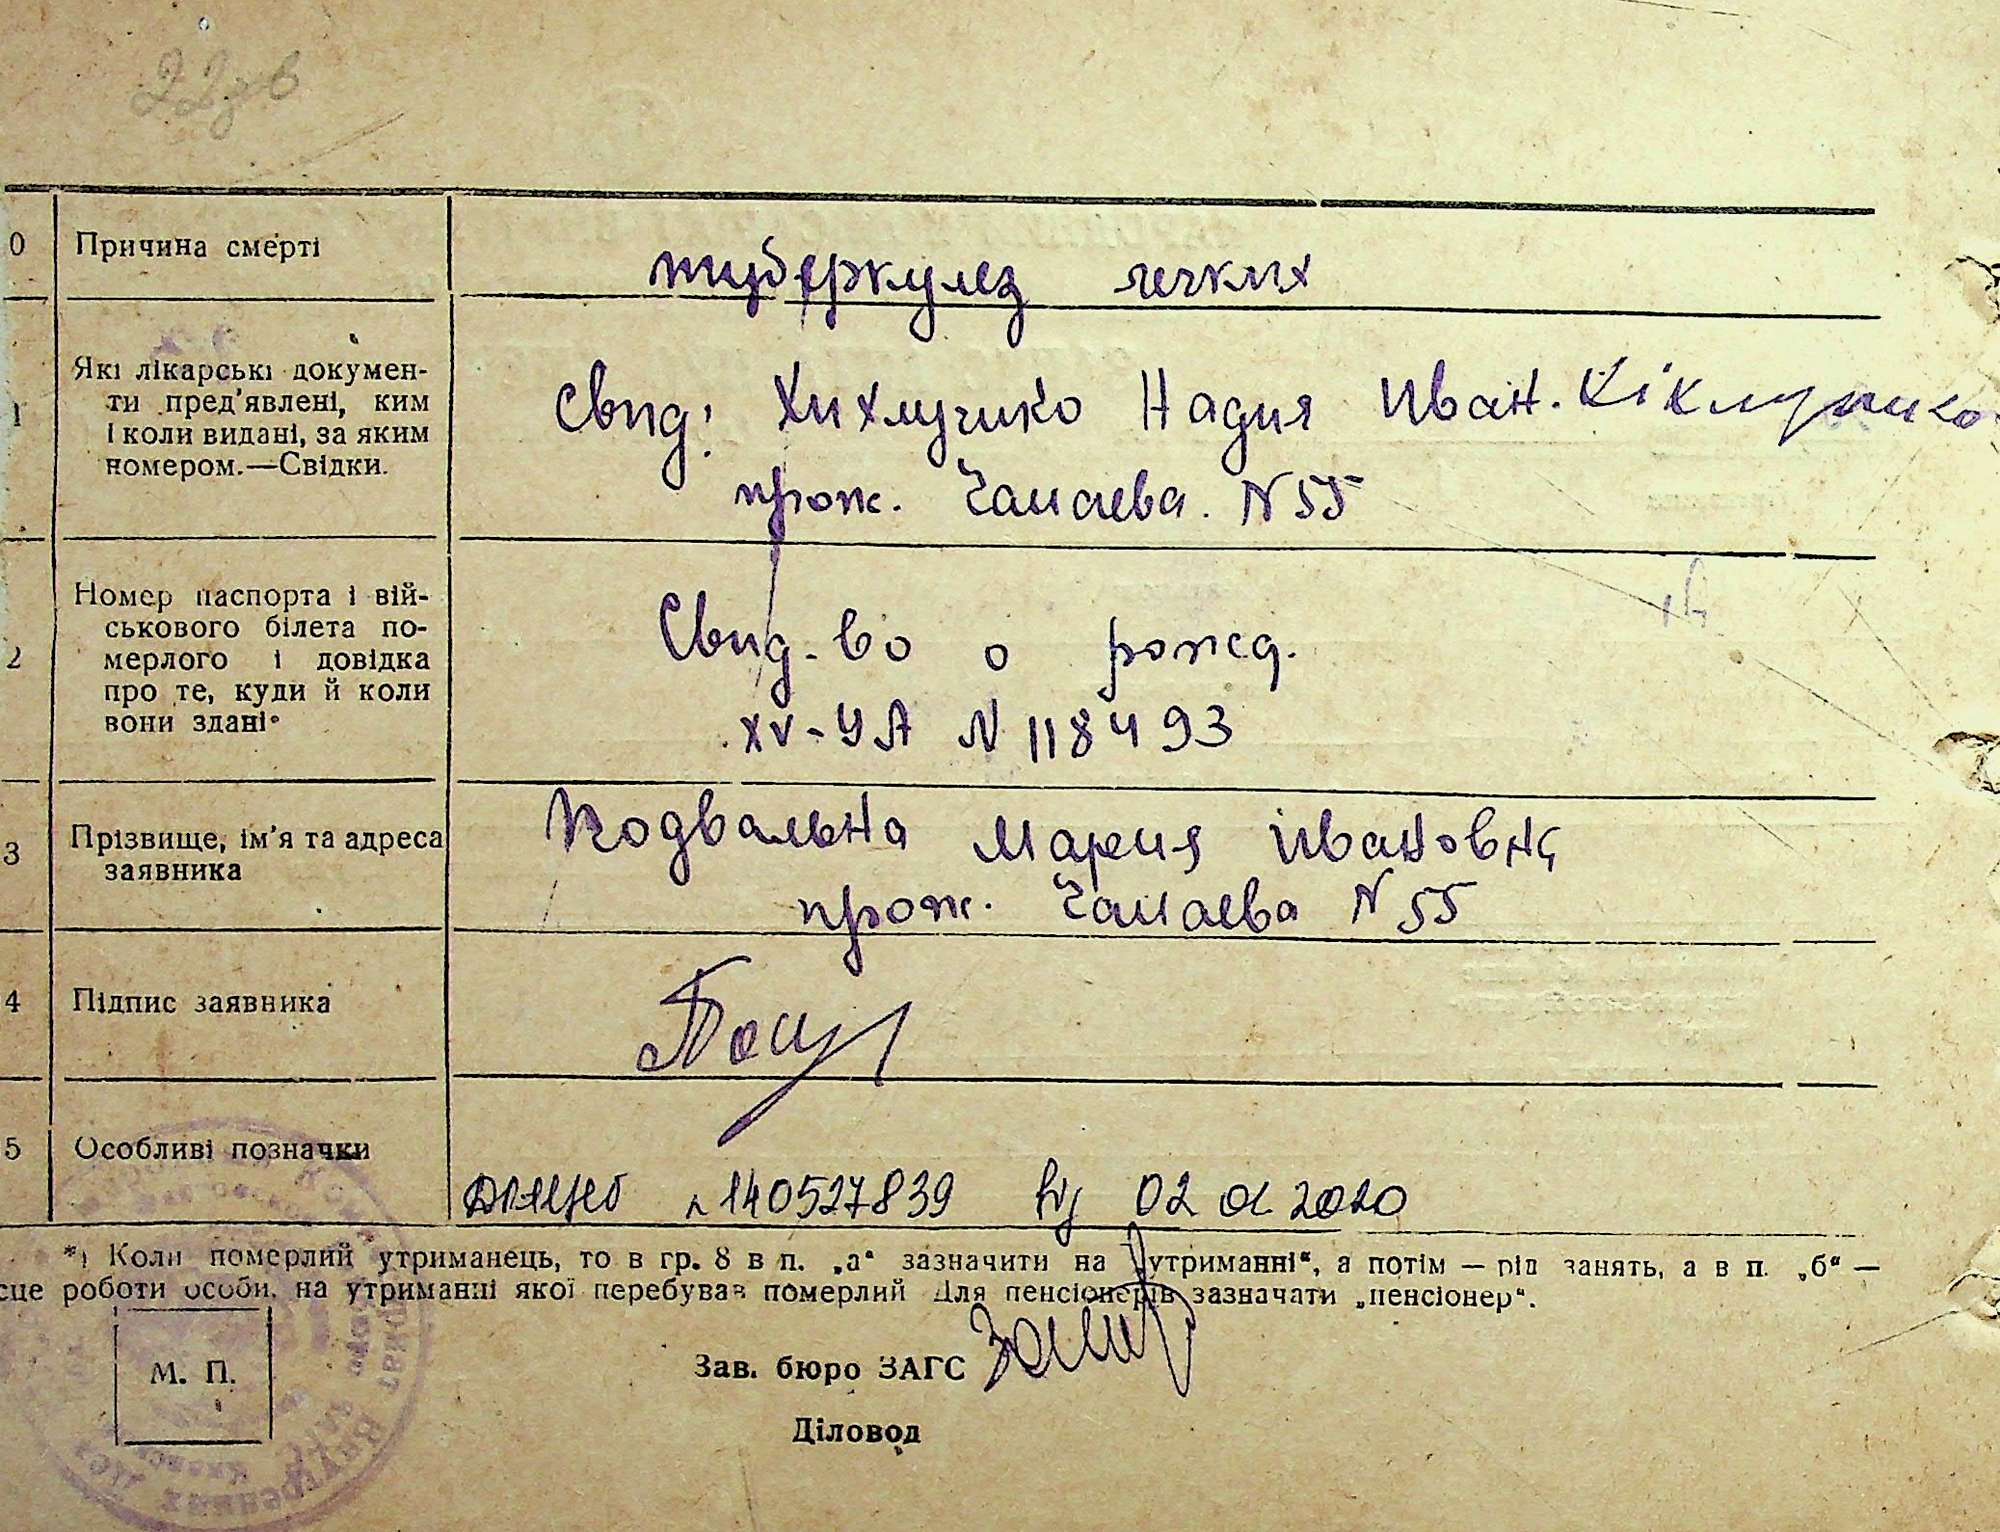 22зв
0 Причина смерті
туберкулез легких
1 Які лікарські докумен-
ти пред'явлені, ким
і коли видані, за яким
номером.—Свідки.
Свид: Хихлушко Надия Иван.
прож. Чапаева. N 55
2 Номер паспорта і вій-
ськового білета по-
мерлого і довідка
про те, куди й коли
вони здані
Свид-во о рожд.
XV-УА N 118493
3 Прізвище, ім'я та адреса
заявника
Подвальна Мария Ивановна
прож. Чапаева N 55
4 Підпис заявника
5 Особливі позначки
N 140527839 від 02 01 2020
*) Коли померлий утриманець, то в гр. 8 в п. „а“ зазначити на „утриманні“, а потім — рід занять, а в п. „б“ —
сце роботи особи, на утриманні якої перебував померлий Для пенсіонерів зазначати „пенсіонер“.
М. П.
Зав. бюро ЗАГС
Діловод